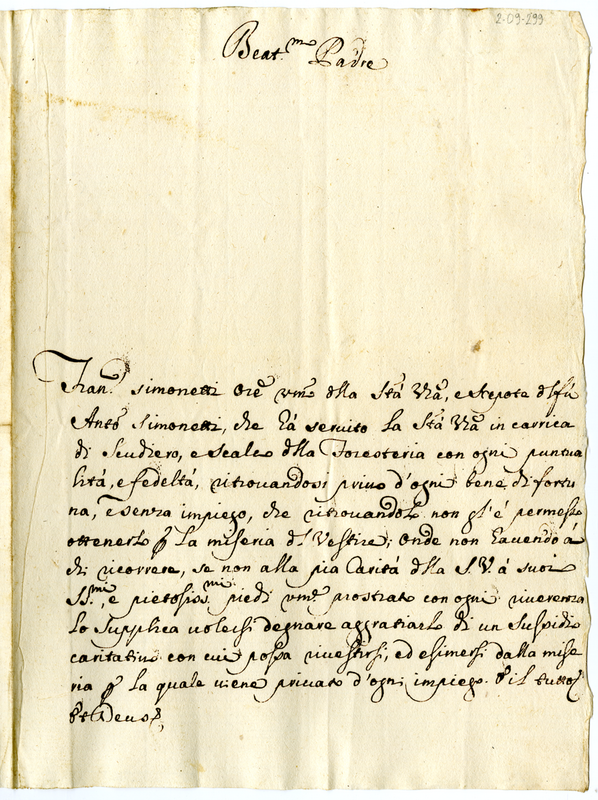 2-09-299
Beat.mo Padre
Fran.co Simonetti Ore vmo dlla Stà Vrã, e Nepote dl fù
Anto Simonetti, che hà servito la Stà Vrã in carrica
di Scudiero, e scalco dlla Foresteria con ogni puntua
lità, e fedeltà, ritrovandosi privo d'ogni bene di fortu
na, e senza impiego, che ritrovandolo non gl'è permesso
ottenerlo p la miseria dl Vestire; Onde non havendo à
chi ricorrere, se non alla pia Carità dlla S.V. à suoi
SS.mi, e pietosiss.mi piedi vmo prostrato con ogni riverenza
lo supplica volersi degnare aggratiarlo di un sussidio
caritativo con cui possa rivestirsi, ed esimersi dalla mise
ria p la quale viene privato d'ogni impiego. Che il tutto